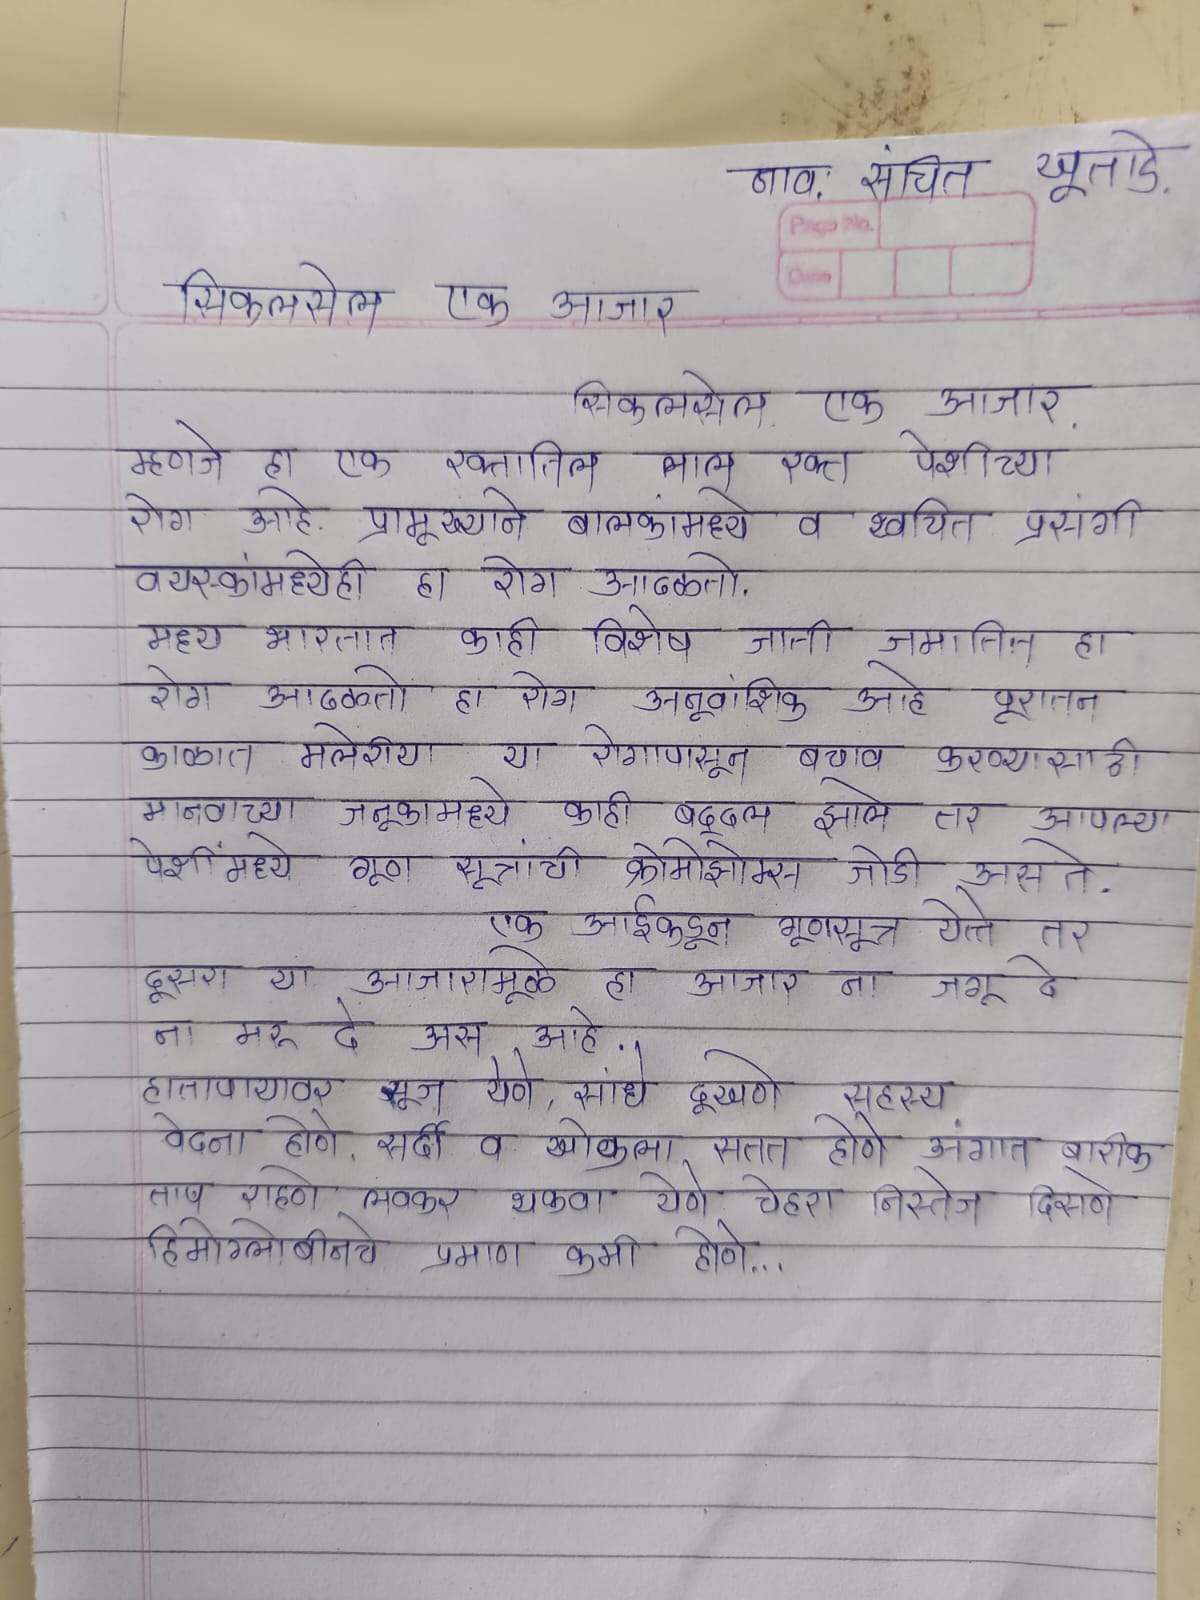 नाव. संचित खूताडे.
Page No.
Date
सिकलसेल एक आजार
सिकलसेल एक आजार.
म्हणजे हा एक रक्तातिल लाल रक्त पेशीच्या
रोग आहे. प्रामूख्याने बालकांमध्ये व क्वचित प्रसंगी
वयस्कांमध्येही हा रोग आढळतो.
मध्य भारतात काही विशेष जाती जमातित हा
रोग आढळतो हा रोग अनूवांशिक आहे पूरातन
काळात मलेरीया या रोगापासून बचाव करण्यासाठी
मानवाच्या जनूकामध्ये काही बद्दल झाले तर आपल्या
पेशींमध्ये गूण सूत्रांची क्रोमोझोम्स जोडी असते.
एक आईकडून गूणसूत्र येते तर
दूसरा या आजारामूळे हा आजार ना जगू दे
ना मरू दे अस आहे.
हातापायावर सूज येणे, सांधे दूखणे सहस्य
वेदना होणे, सर्दी व खोकला सतत होणे अंगात बारीक
ताप राहणे लवकर थकवा येणे चेहरा निस्तेज दिसणे
हिमोग्लोबीनचे प्रमाण कमी होणे...